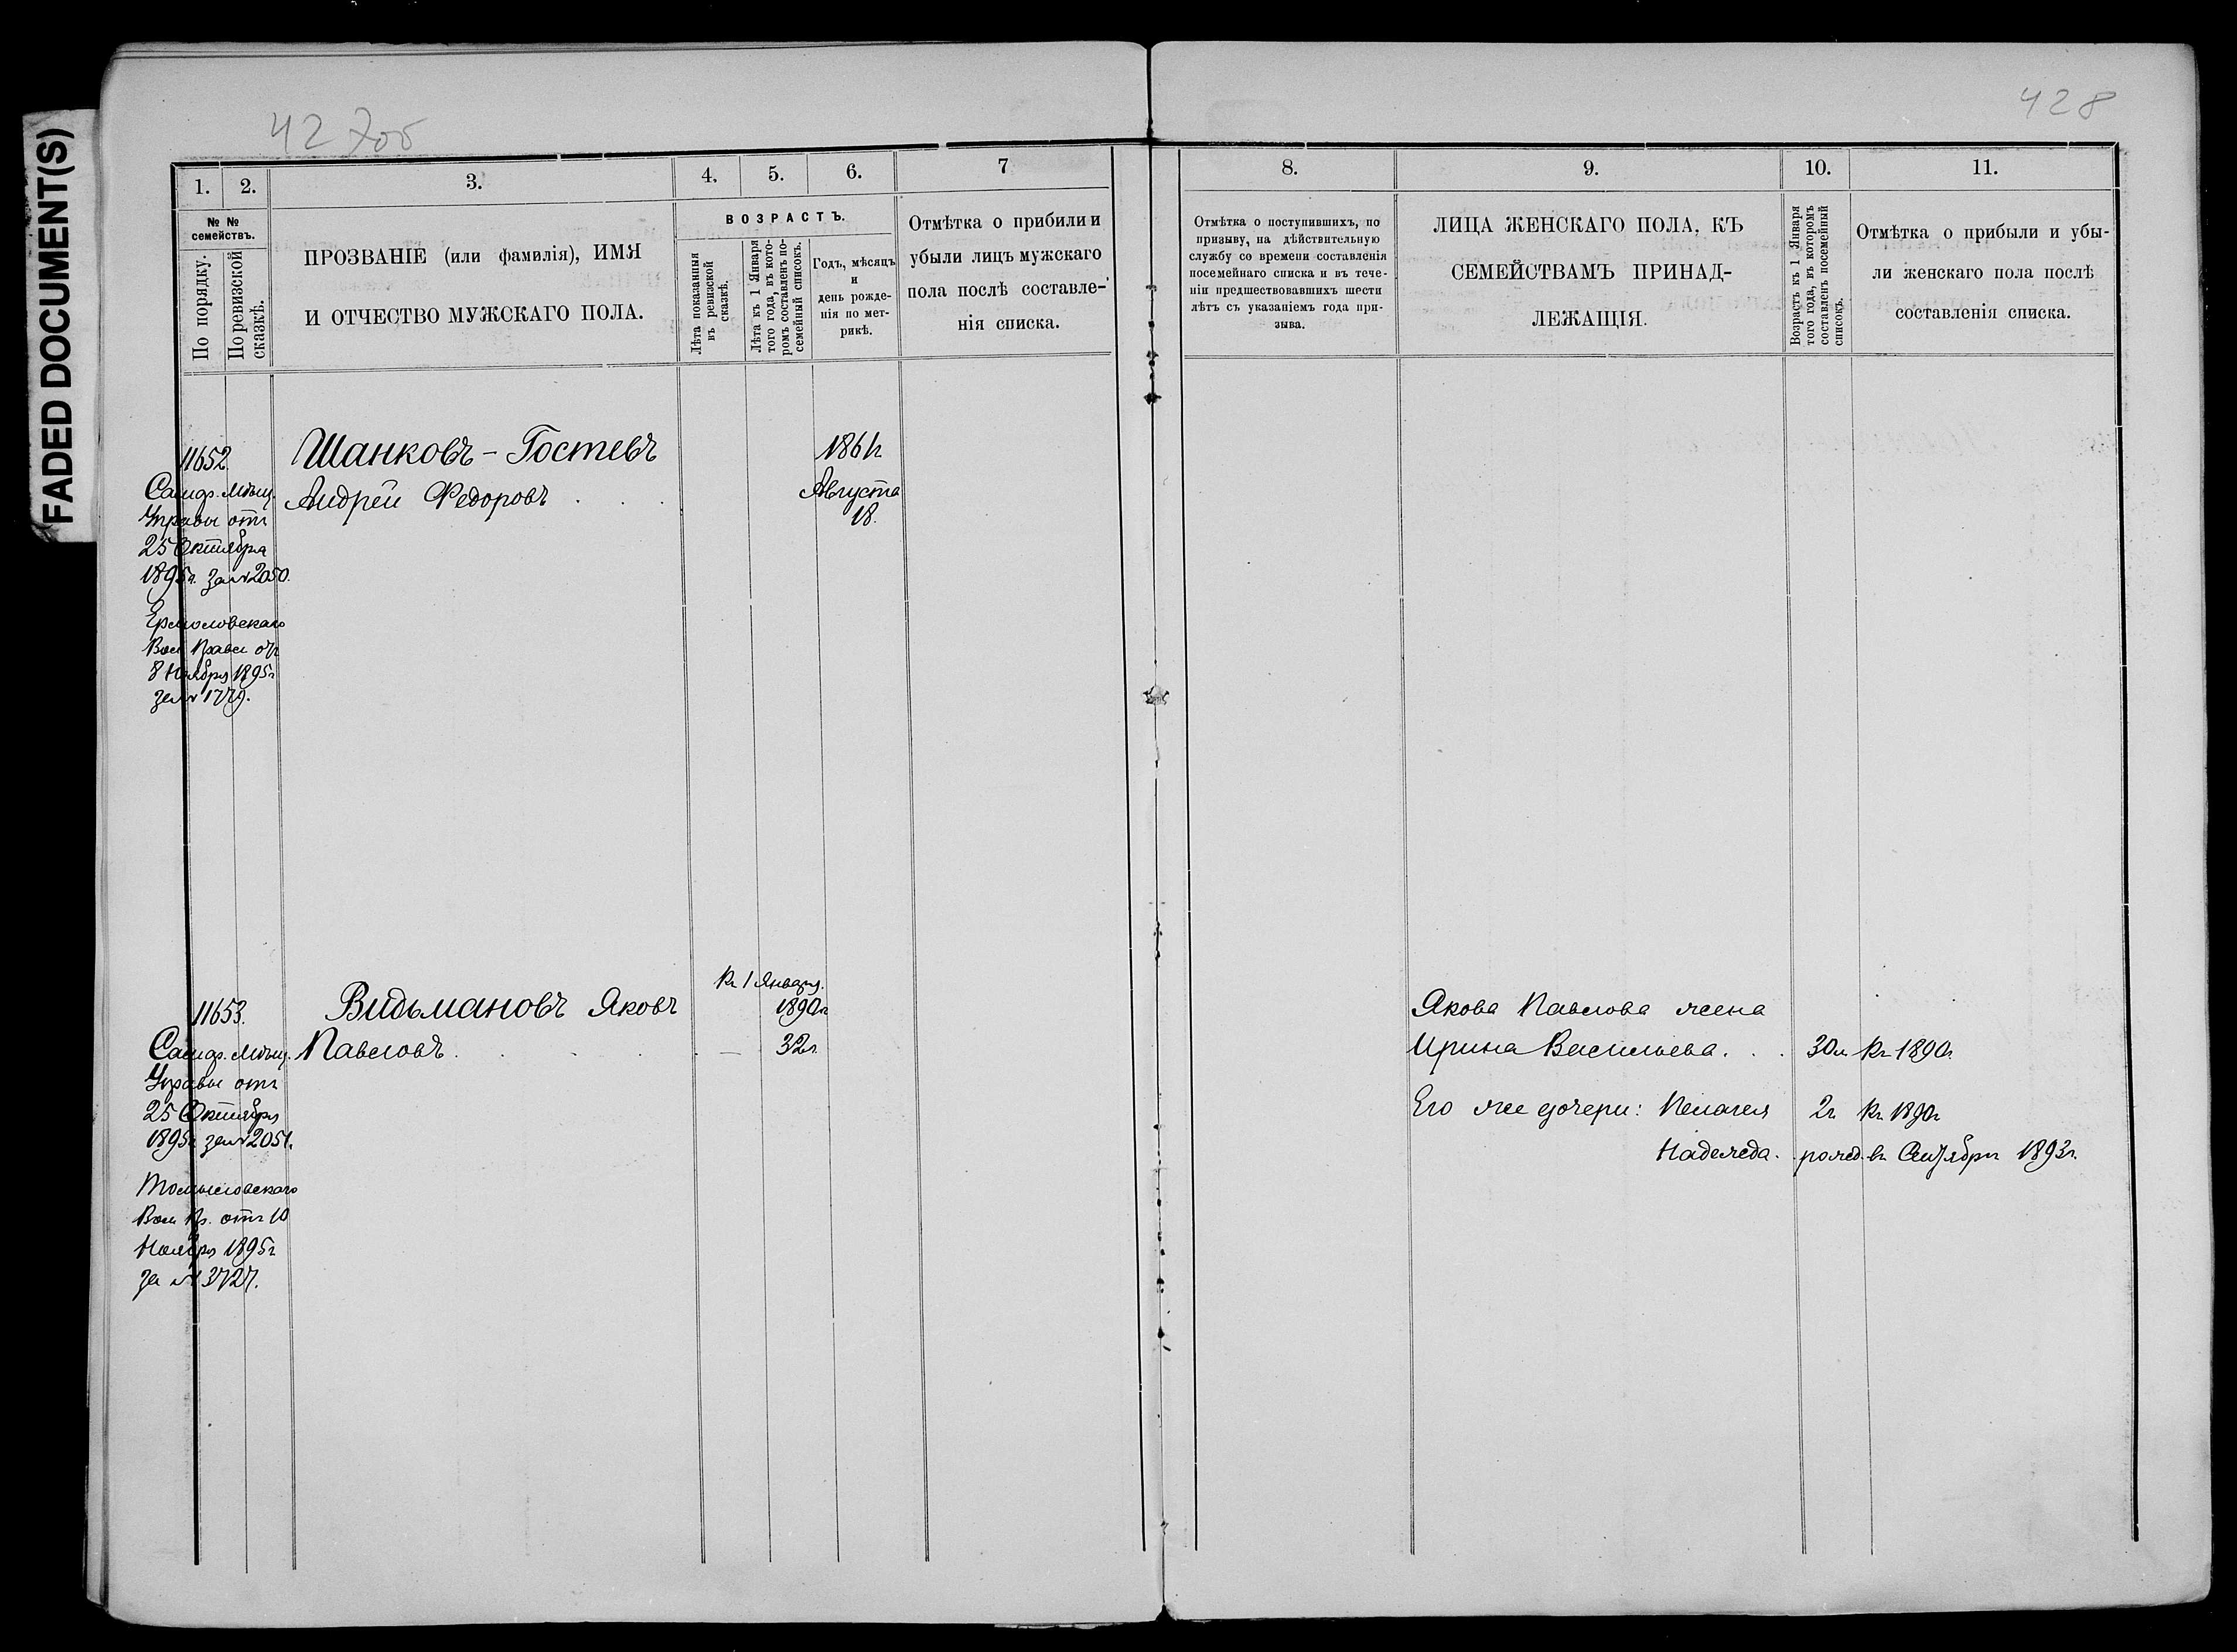 FADED DOCUMENT(S)
427об
428
1.
2.
3.
4.
5.
6.
7
№ №
семействъ.
По порядку.
По ревизской
сказкѣ.
ПРОЗВАНІЕ (или фамилія), ИМЯ
И ОТЧЕСТВО МУЖСКАГО ПОЛА.
ВОЗРАСТЪ.
Лѣта показанныя
въ ревизской
сказкѣ.
Лѣта къ 1 Января
того года, въ кото-
ромъ составленъ по-
семейный списокъ.
Годъ, мѣсяцъ
и
день рожде-
нія по мет-
рикѣ.
Отмѣтка о прибыли и
убыли лицъ мужскаго
пола послѣ составле-
нія списка.
8.
9.
10.
11.
Отмѣтка о поступившихъ, по
призыву, на дѣйствительную
службу со времени составленія
посемейнаго списка и въ тече-
ніи предшествовавшихъ шести
лѣтъ съ указаніемъ года при-
зыва.
ЛИЦА ЖЕНСКАГО ПОЛА, КЪ
СЕМЕЙСТВАМЪ ПРИНАД-
ЛЕЖАЩІЯ.
Возрастъ къ 1 Января
того года, въ которомъ
составленъ посемейный
списокъ.
Отмѣтка о прибыли и убы-
ли женскаго пола послѣ
составленія списка.
11652.
Шанковъ - Гостевъ
1861г
Самар. Мѣщ.
Андрей Федоровъ
Августа
Управы отъ
18.
25 Октября
1895г. за № 2050.
Ермоловскаго
Вол Правл отъ
8 Ноября 1895г
за № 1779.
Къ 1 Января.
11653.
Видьмановъ Яковъ
1890г
Якова Павлова жена
Самар. Мѣщ.
Павловъ
—
32г.
Ирина Васильева.
30л
Къ 1890г
Управы отъ
25 Октября
Его же дочери: Пелагея
2г
Къ 1890г
1895г за № 2051.
Надежда.
рожд. въ Сентябрѣ 1893г.
Томыловскаго
Вол Пр. отъ 10
Ноября 1895г
за № 3727.